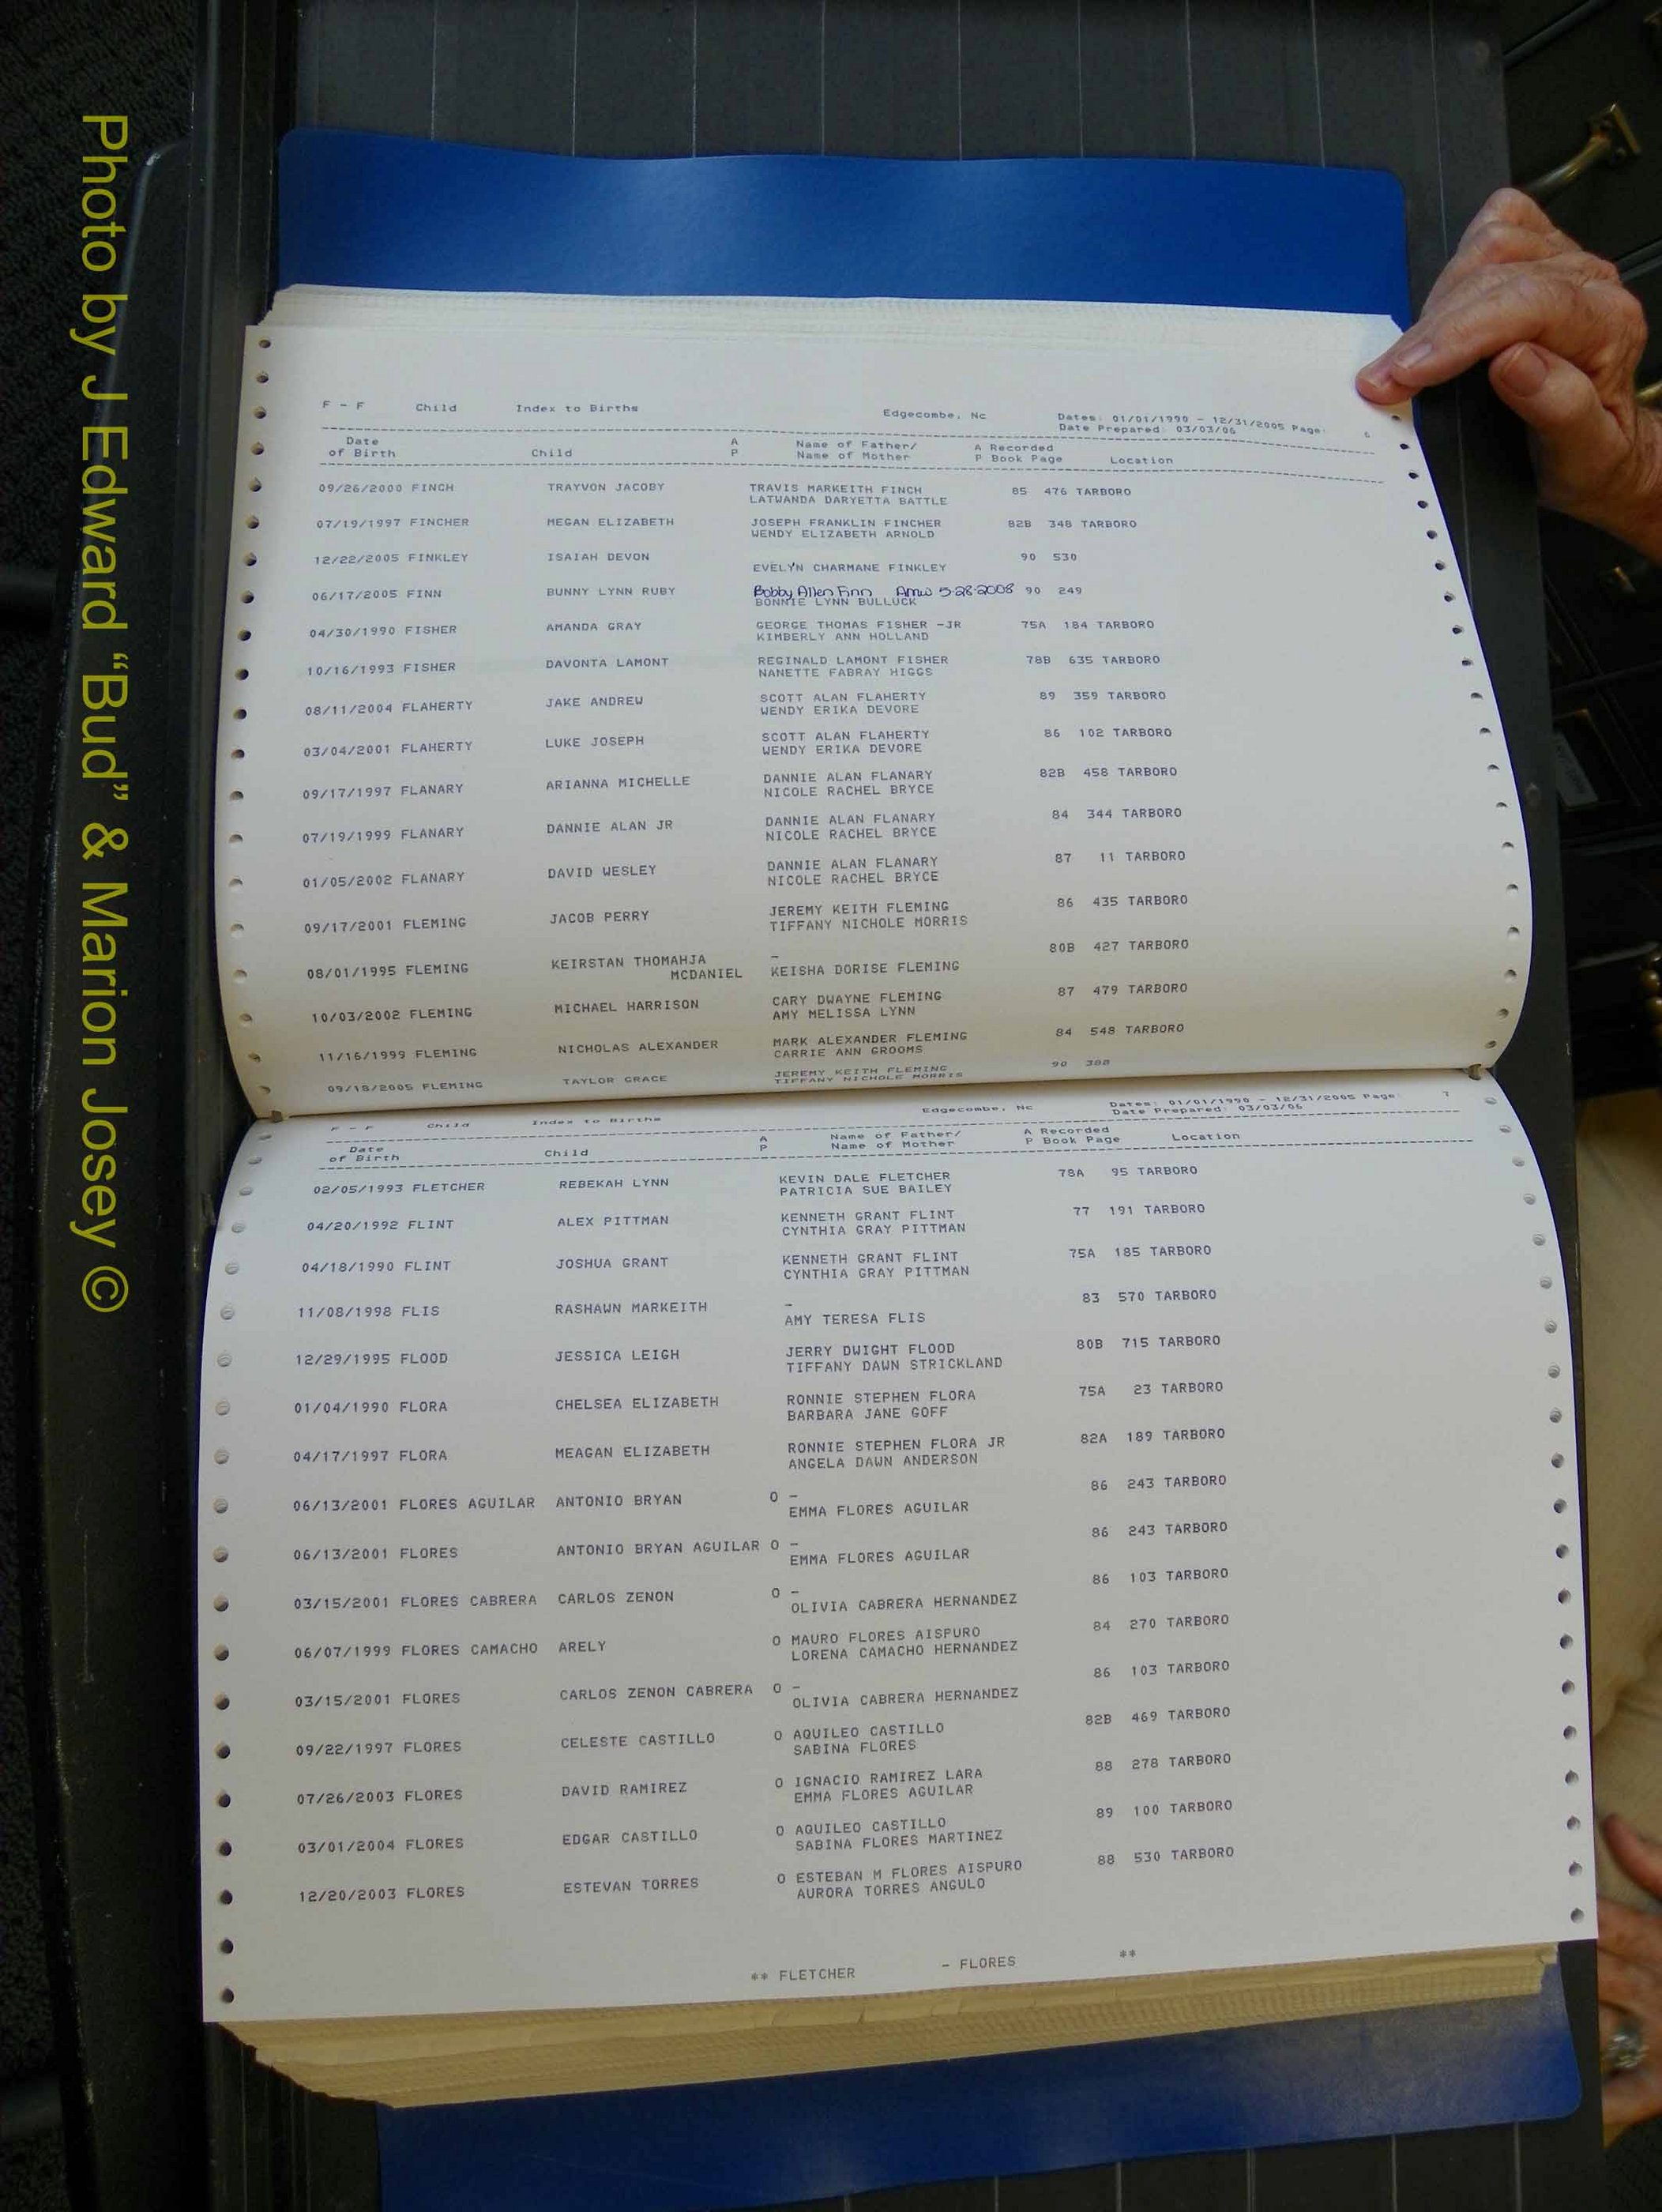 Photo by J Edward “Bud” & Marion Josey ©
F - F Child Index to Births Edgecombe, Nc Dates: 01/01/1990 - 12/31/2005 Page: 6
Date Prepared: 03/03/06
Date A Name of Father/ A Recorded
of Birth Child P Name of Mother P Book Page Location
09/26/2000 FINCH TRAYVON JACOBY TRAVIS MARKEITH FINCH 85 476 TARBORO
LATWANDA DARYETTA BATTLE
07/19/1997 FINCHER MEGAN ELIZABETH JOSEPH FRANKLIN FINCHER 82B 348 TARBORO
WENDY ELIZABETH ARNOLD
12/22/2005 FINKLEY ISAIAH DEVON 90 530
EVELYN CHARMANE FINKLEY
06/17/2005 FINN BUNNY LYNN RUBY Bobby Allen Finn Amw 5-28-2008 90 249
BONNIE LYNN BULLUCK
04/30/1990 FISHER AMANDA GRAY GEORGE THOMAS FISHER -JR 75A 184 TARBORO
KIMBERLY ANN HOLLAND
10/16/1993 FISHER DAVONTA LAMONT REGINALD LAMONT FISHER 78B 635 TARBORO
NANETTE FABRAY HIGGS
08/11/2004 FLAHERTY JAKE ANDREW SCOTT ALAN FLAHERTY 89 359 TARBORO
WENDY ERIKA DEVORE
03/04/2001 FLAHERTY LUKE JOSEPH SCOTT ALAN FLAHERTY 86 102 TARBORO
WENDY ERIKA DEVORE
09/17/1997 FLANARY ARIANNA MICHELLE DANNIE ALAN FLANARY 82B 458 TARBORO
NICOLE RACHEL BRYCE
07/19/1999 FLANARY DANNIE ALAN JR DANNIE ALAN FLANARY 84 344 TARBORO
NICOLE RACHEL BRYCE
01/05/2002 FLANARY DAVID WESLEY DANNIE ALAN FLANARY 87 11 TARBORO
NICOLE RACHEL BRYCE
09/17/2001 FLEMING JACOB PERRY JEREMY KEITH FLEMING 86 435 TARBORO
TIFFANY NICHOLE MORRIS
08/01/1995 FLEMING KEIRSTAN THOMAHJA - 80B 427 TARBORO
MCDANIEL KEISHA DORISE FLEMING
10/03/2002 FLEMING MICHAEL HARRISON CARY DWAYNE FLEMING 87 479 TARBORO
AMY MELISSA LYNN
11/16/1999 FLEMING NICHOLAS ALEXANDER MARK ALEXANDER FLEMING 84 548 TARBORO
CARRIE ANN GROOMS
09/18/2005 FLEMING TAYLOR GRACE JEREMY KEITH FLEMING 90 388
TIFFANY NICHOLE MORRIS
F - F Child Index to Births Edgecombe, Nc Dates: 01/01/1990 - 12/31/2005 Page: 7
Date Prepared: 03/03/06
Date A Name of Father/ A Recorded
of Birth Child P Name of Mother P Book Page Location
02/05/1993 FLETCHER REBEKAH LYNN KEVIN DALE FLETCHER 78A 95 TARBORO
PATRICIA SUE BAILEY
04/20/1992 FLINT ALEX PITTMAN KENNETH GRANT FLINT 77 191 TARBORO
CYNTHIA GRAY PITTMAN
04/18/1990 FLINT JOSHUA GRANT KENNETH GRANT FLINT 75A 185 TARBORO
CYNTHIA GRAY PITTMAN
11/08/1998 FLIS RASHAWN MARKEITH - 83 570 TARBORO
AMY TERESA FLIS
12/29/1995 FLOOD JESSICA LEIGH JERRY DWIGHT FLOOD 80B 715 TARBORO
TIFFANY DAWN STRICKLAND
01/04/1990 FLORA CHELSEA ELIZABETH RONNIE STEPHEN FLORA 75A 23 TARBORO
BARBARA JANE GOFF
04/17/1997 FLORA MEAGAN ELIZABETH RONNIE STEPHEN FLORA JR 82A 189 TARBORO
ANGELA DAWN ANDERSON
06/13/2001 FLORES AGUILAR ANTONIO BRYAN O - 86 243 TARBORO
EMMA FLORES AGUILAR
06/13/2001 FLORES ANTONIO BRYAN AGUILAR O - 86 243 TARBORO
EMMA FLORES AGUILAR
03/15/2001 FLORES CABRERA CARLOS ZENON O - 86 103 TARBORO
OLIVIA CABRERA HERNANDEZ
06/07/1999 FLORES CAMACHO ARELY O MAURO FLORES AISPURO 84 270 TARBORO
LORENA CAMACHO HERNANDEZ
03/15/2001 FLORES CARLOS ZENON CABRERA O - 86 103 TARBORO
OLIVIA CABRERA HERNANDEZ
09/22/1997 FLORES CELESTE CASTILLO O AQUILEO CASTILLO 82B 469 TARBORO
SABINA FLORES
07/26/2003 FLORES DAVID RAMIREZ O IGNACIO RAMIREZ LARA 88 278 TARBORO
EMMA FLORES AGUILAR
03/01/2004 FLORES EDGAR CASTILLO O AQUILEO CASTILLO 89 100 TARBORO
SABINA FLORES MARTINEZ
12/20/2003 FLORES ESTEVAN TORRES O ESTEBAN M FLORES AISPURO 88 530 TARBORO
AURORA TORRES ANGULO
** FLETCHER - FLORES **